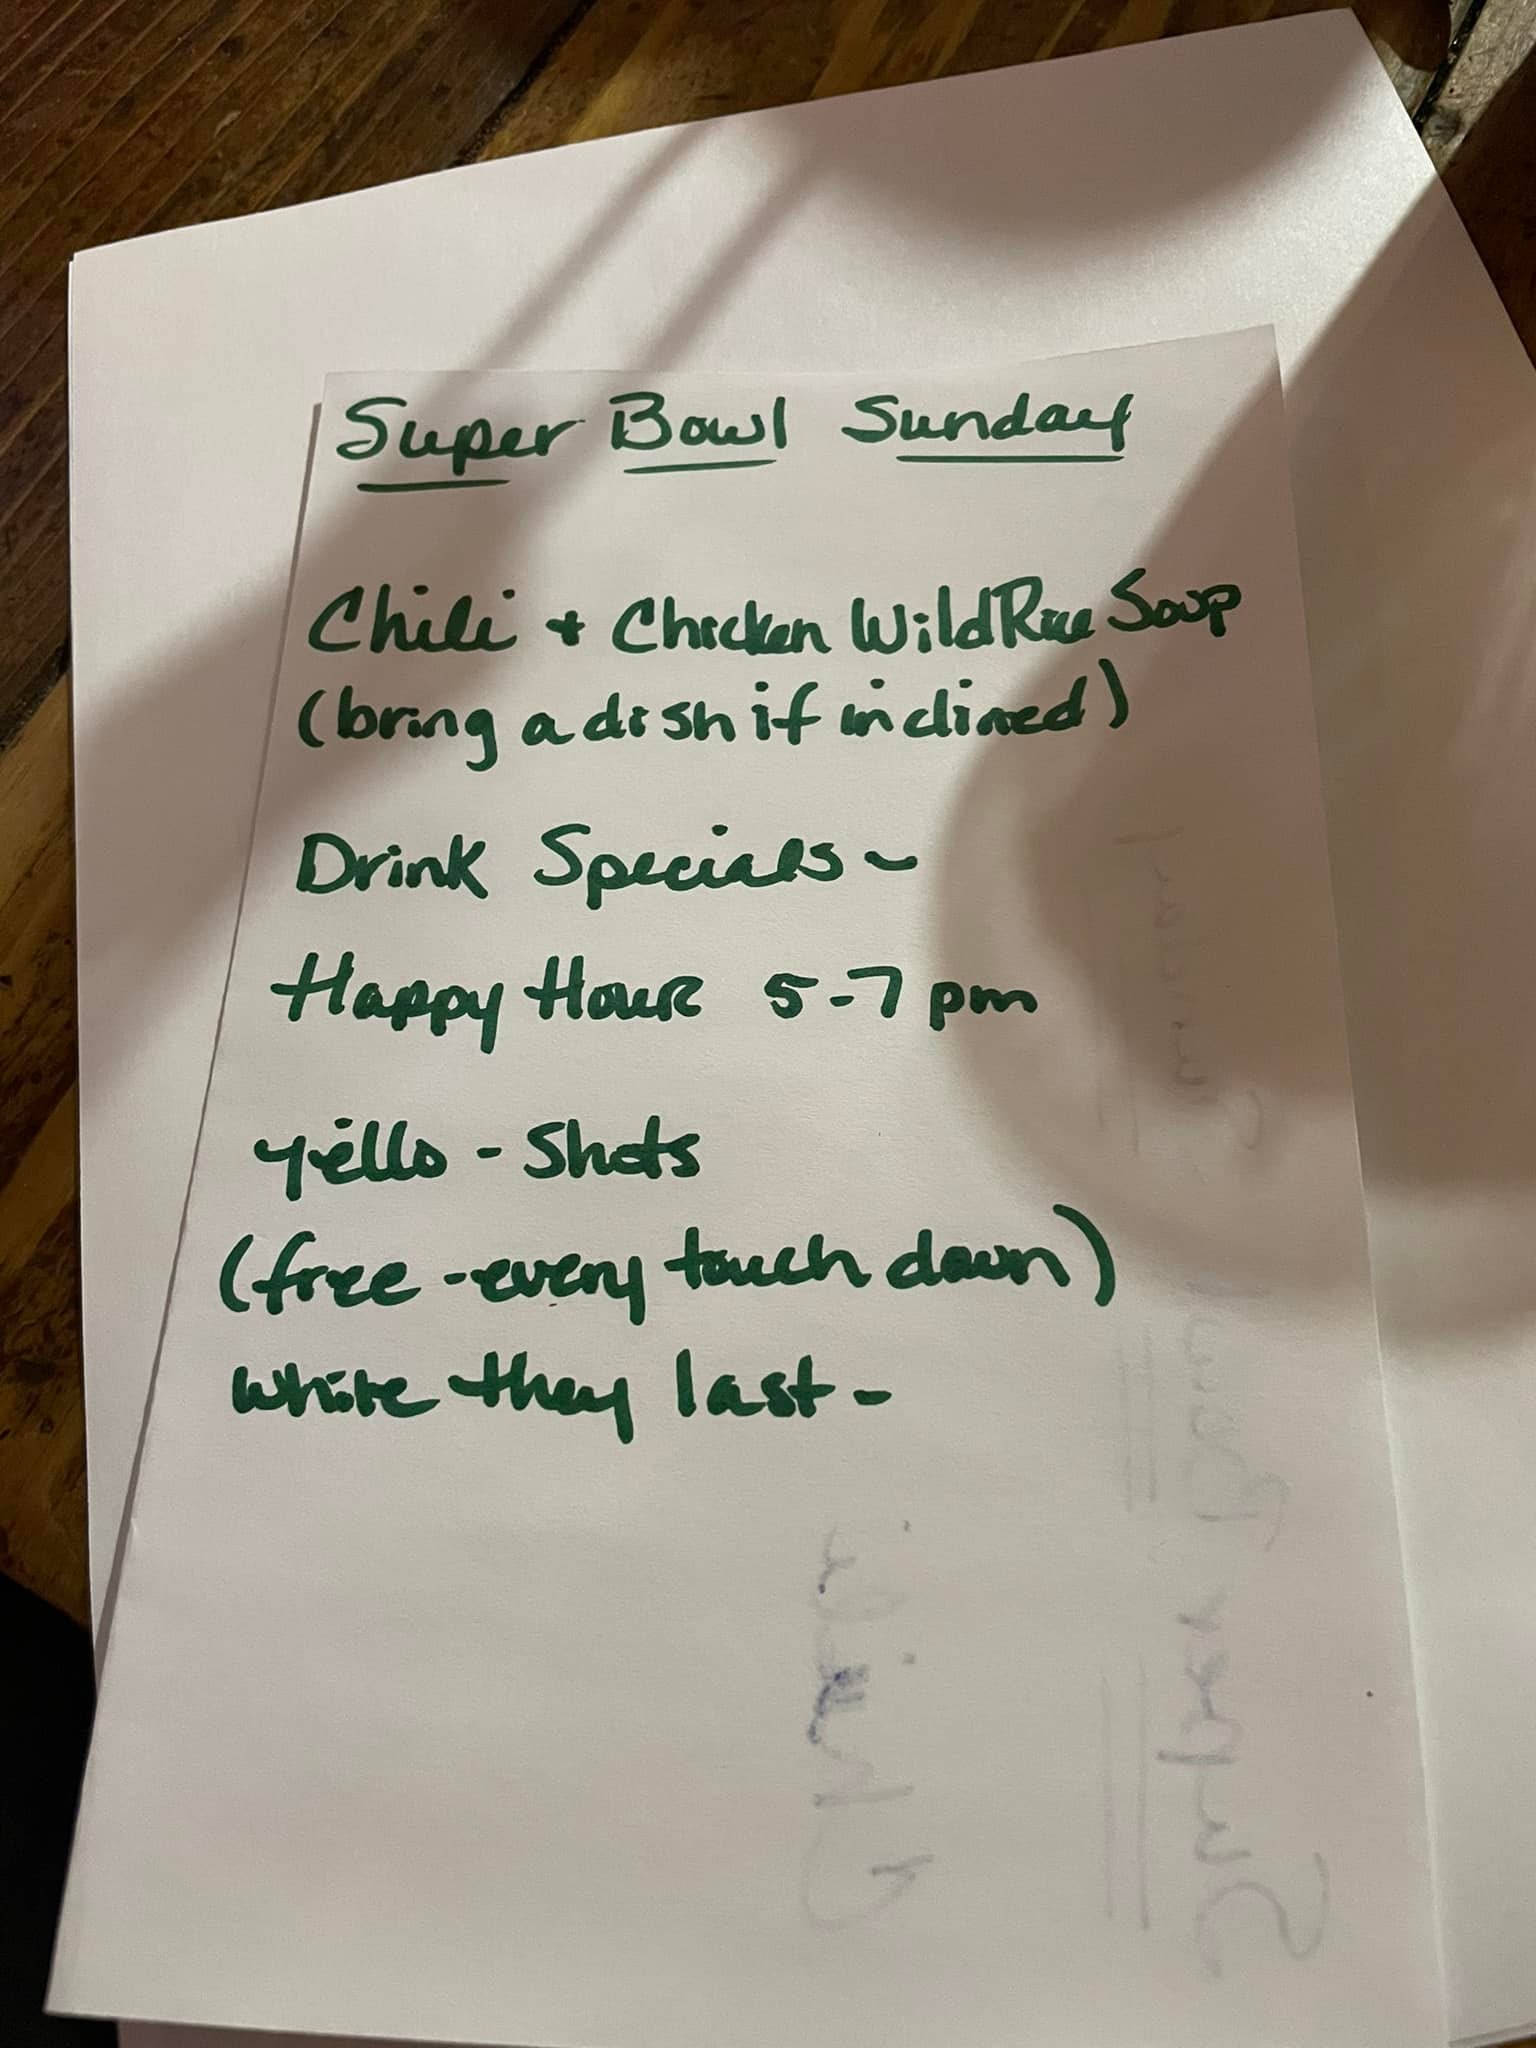 Super Bowl Sunday
Chili + Chicken Wild Rice Soup
(bring a dish if inclined)
Drink Specials ~
Happy Hour 5-7 pm
yello - Shots
(free - every touch down)
while they last -
Super Bowl Sunday
Chili